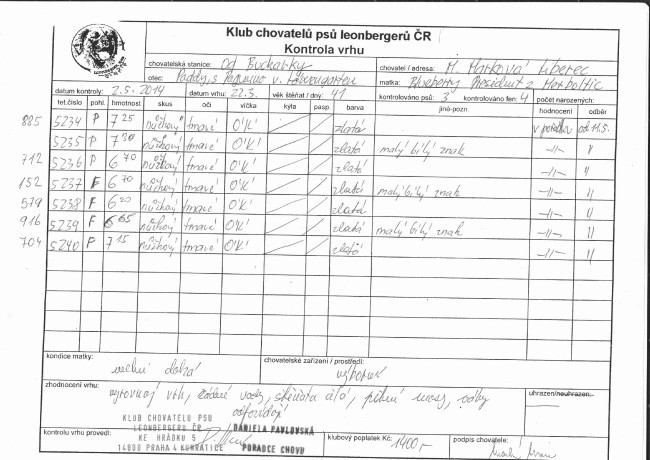 Klub chovatelů psů leonbergerů ČR
Kontrola vrhu
chovatelská stanice: Od Buckalky
chovatel / adresa: M. Horková Liberec
otec: Paddy's v. Löwengarten
matka: Blueberry President z
datum kontroly: 2.5.2014 datum vrhu: 22.3. věk štěňat / dny: 41 kontrolováno psů: 3 kontrolováno fen: 4 počet narozených:
tet.číslo pohl. hmotnost skus oči víčka kýla pasp. barva jiné-pozn. hodnocení odběr
885 5234 P 7 25 nůžkový tmavé O'K' zlatá v pořádku od 11.5.
5235 P 7 30 nůžkový tmavé O'K' zlatá malý bílý znak -//- //
712 5236 P 6 70 nůžkový tmavé O'K' zlatá -//- //
152 5237 F 6 70 nůžkový tmavé O'K' zlatá malý bílý znak -//- //
579 5238 F 6 20 nůžkový tmavé O'K' zlatá -//- //
916 5239 F 6 65 nůžkový tmavé O'K' zlatá malý bílý znak -//- //
704 5240 F 7 15 nůžkový tmavé O'K' zlatá -//- //
kondice matky: velmi dobrá
chovatelské zařízení / prostředí: výborné
zhodnocení vrhu: vyrovnaný vrh, žádné vady, štěňata čilá, pěkné
odpovídají
uhrazen/neuhrazen:
KLUB CHOVATELŮ PSŮ
LEONBERGERŮ ČR
KE HRÁDKU 5
14800 PRAHA 4 KUNRATICE
DANIELA PAVLOVSKÁ
PORADCE CHOVU
kontrolu vrhu provedl:
klubový poplatek Kč: 1400,-
podpis chovatele: